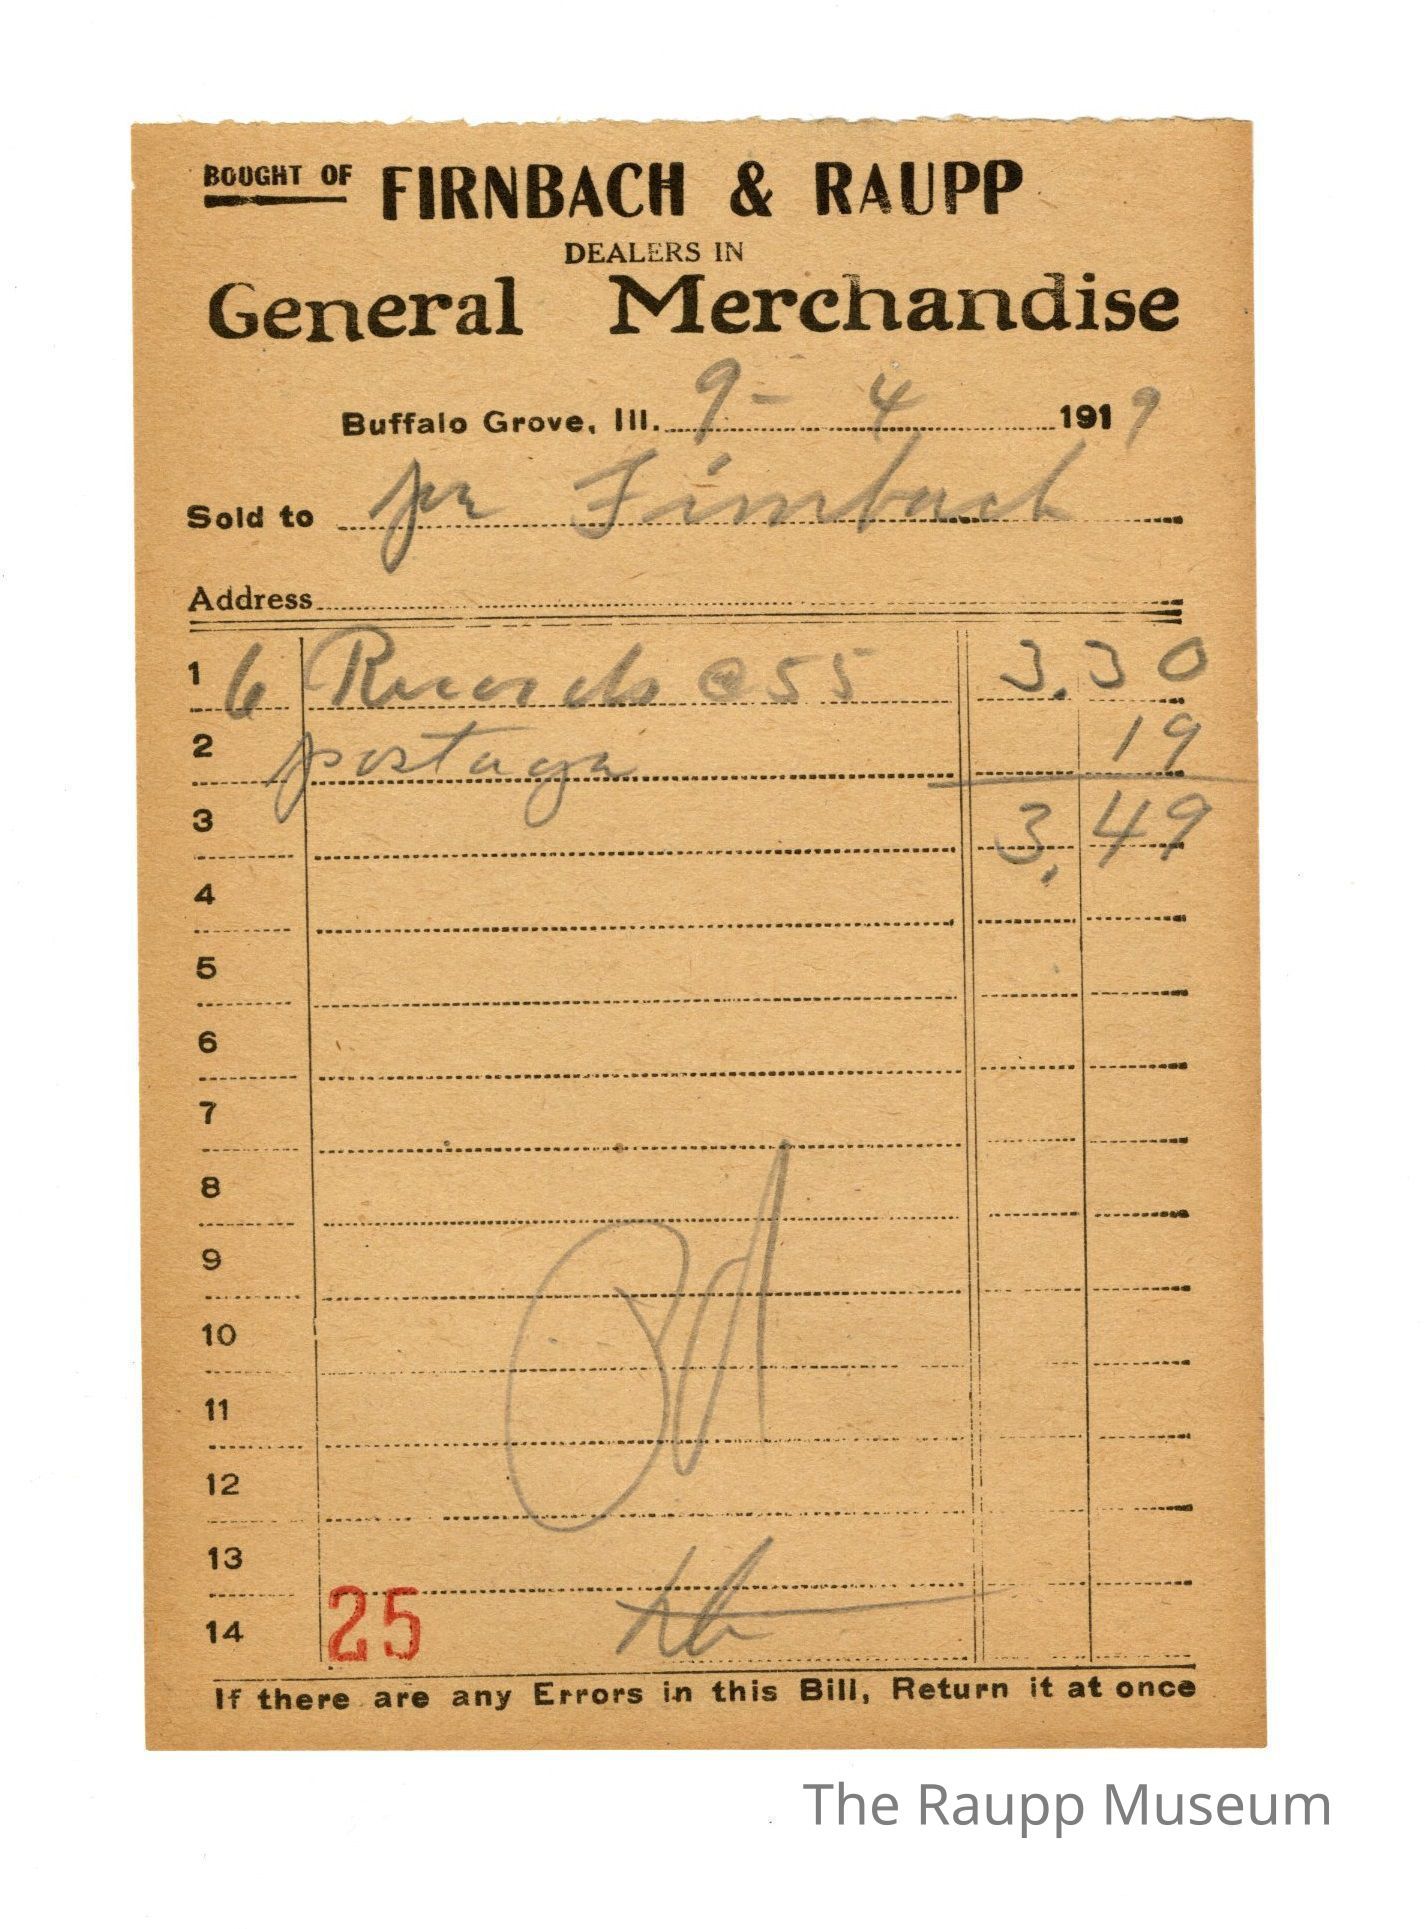 BOUGHT OF FIRNBACH & RAUPP
DEALERS IN
General Merchandise
Buffalo Grove, Ill. 9 - 4 1919
Sold to Firnbach
Address
1 6 Records @ 55 3.30
2 postage 19
3 3.49
4
5
6
7
8
9
10
11
12
13
14 25
If there are any Errors in this Bill, Return it at once
The Raupp Museum